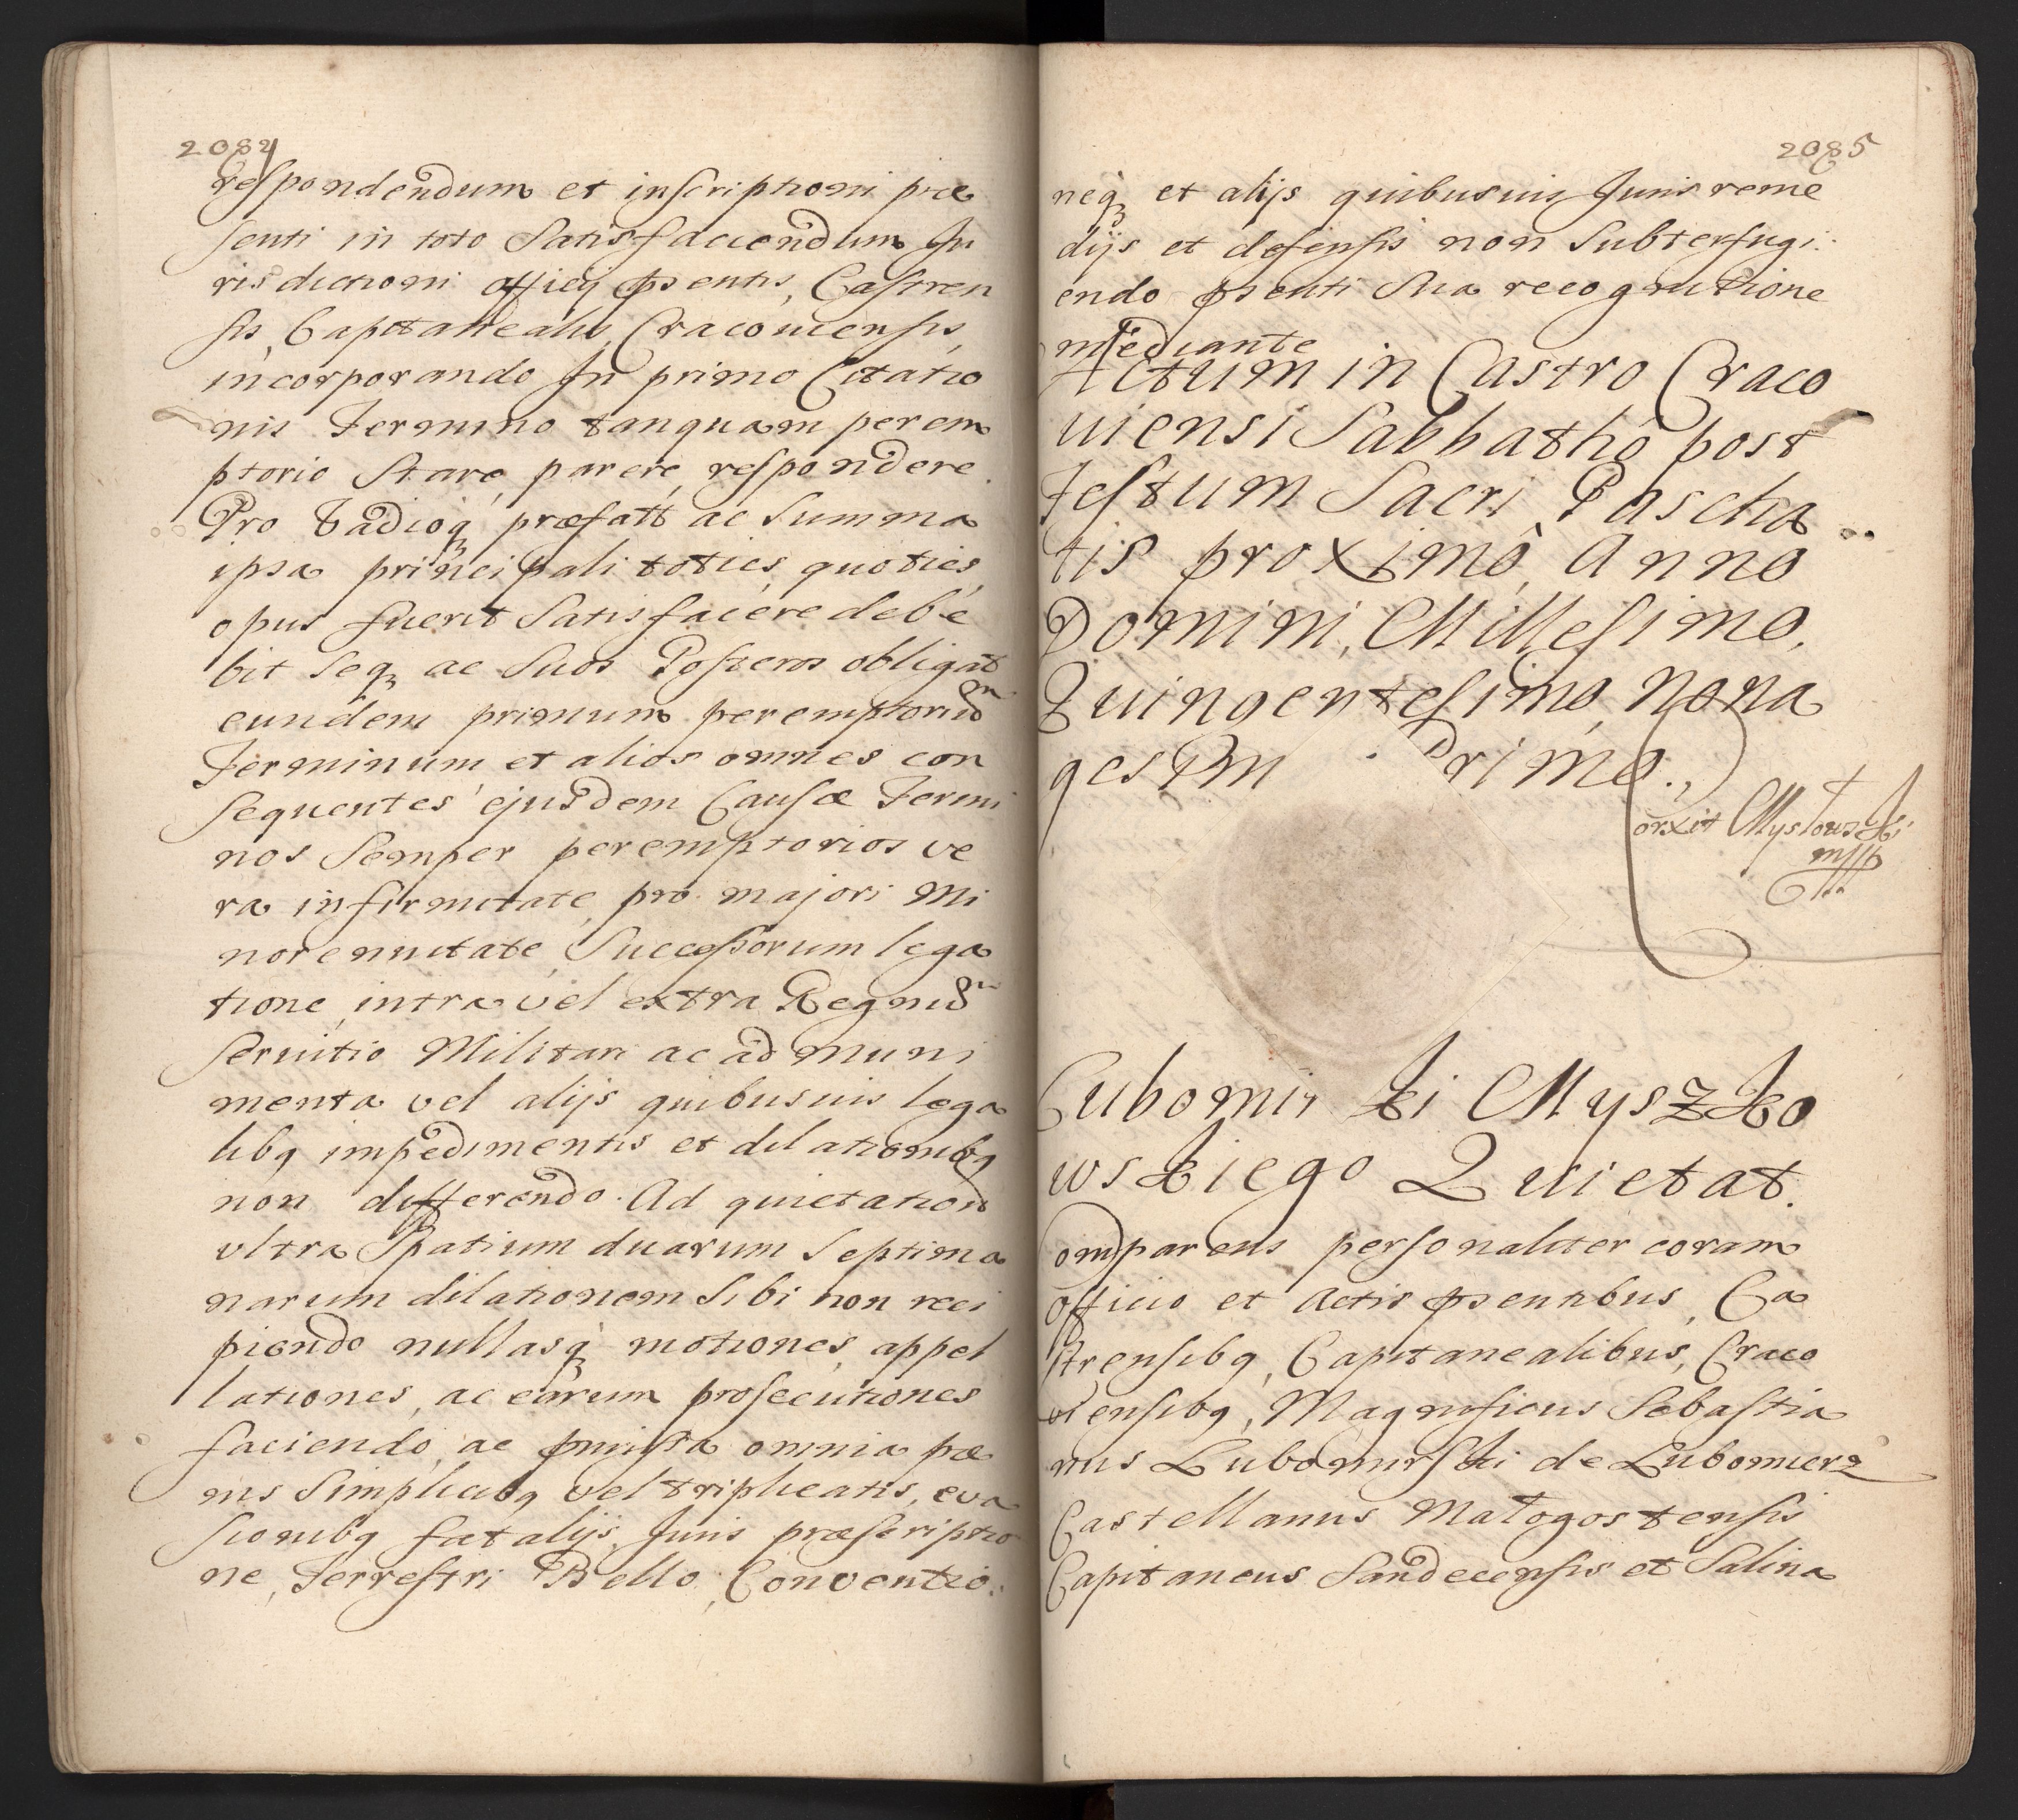 2084
respondendum et inscriptioni præ
senti in toto Satisfaciendum Ju
risdictioni officij psentis, Castren
sis, Capitanealis, Cracoviensis,
incorporando In primo Citatio
nis Termino tanquam perem
ptorio Stare, parere, respondere.
Pro Vadioq, præfatt ac Summa
ipsa principali toties, quoties,
opus fuerit Satisfacere debe
bit seq, ac Suos Posteros obligat
eundem primum peremptoriu
Terminum et alios omnes con
sequentes ejusdem Causæ Termi
nos Semper peremptorios ve
ra infirmitate, pro majori Mi
norennitate, Successorum lega
tione, intra vel extra Regnu
Servitio Militari ac ad muni
menta vel alijs quibusvis lega
libq impedimentis et dilationibq
non differendo. Ad quietation
vltra Spatium duarum Septima
narum dilationem Sibi non reci
piendo nullasq, motiones, appel
lationes, ac earum prosecutiones
faciendo, ac pmissa omnia pæ
nis Simplicibq vel triplicatis, eva
sionibq fatalijs, Juris præscriptio
ne, Terrestri Bello, Conventio:
2085
neq, et alijs quibusvis Juris reme
dijs et defensis non Subterfugi:
endo psenti Sua recognitione
mediante
Actum in Castro Craco
viensi Sabbatho post
Festum Sacri Pascha
tis proximo, Anno
Domini, Millesimo,
Quingentesimo, Nona
gesim Primo.,
orxit Mysłowski
mpp
Lubomir ki Myszko
wskiego Quietat.
Comparens personaliter coram
officio et Actis psentibus, Ca
strensibq, Capitanealibus, Craco
viensibq, Magnificus Sebastia
nus Lubomirski de Lubomierz
Castellanus Małogostensis
Capitaneus Sandecensis et Salina